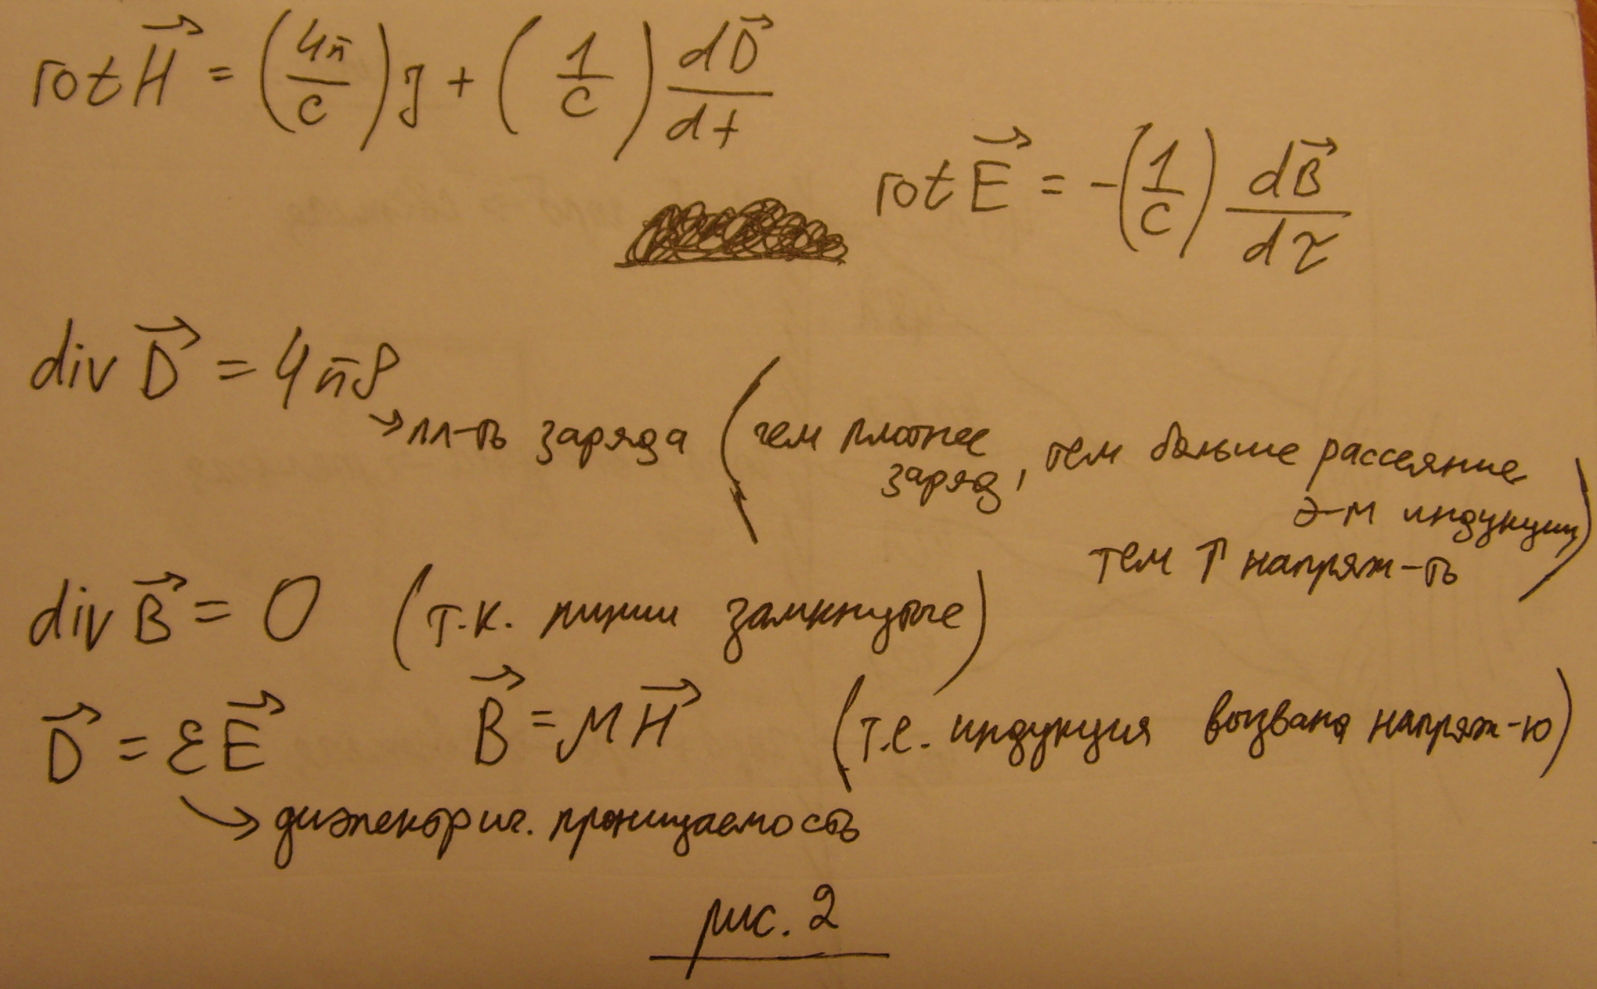 rot H⃗ = (4π/c) j + (1/c) dD⃗/dt
rot E⃗ = -(1/c) dB⃗/dτ
div D⃗ = 4πρ
→ пл-ть заряда (чем плотнее заряд, тем больше рассеяние э-м индукции, тем ↑ напряж-ть)
div B⃗ = 0 (т.к. линии замкнутые)
D⃗ = εE⃗ B⃗ = μH⃗ (т.е. индукция вызвана напряж-ю)
→ диэлектрич. проницаемость
рис. 2